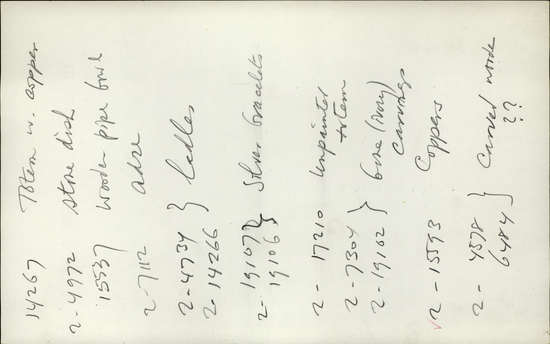 14267 Totem w. copper
2-4972 stone dish
15537 wooden pipe bowl
2-7112 adze
2-4734 } ladles
2-14266
2-19107 } Silver bracelets
19106
2-17210 unpainted totem
2-7304 } bone (ivory) carvings
2-19162
2-15593 Coppers
2-4578 } Carved
6484 ??